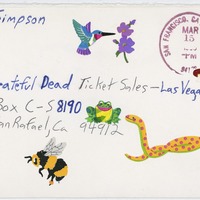 Simpson
SAN FRANCISCO, CA
MAR
13
PM
Grateful Dead Ticket Sales - Las Vegas
Box C-S 8190
San Rafael, Ca 94912